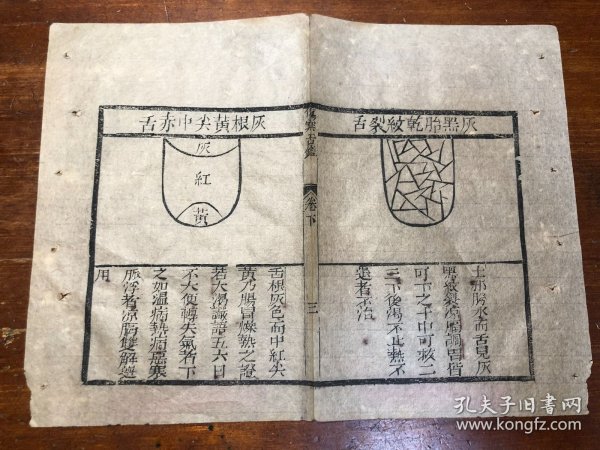 灰黑胎乾紋裂舌
土邪勝水而舌見灰
黑紋裂凉膈調胃皆
可下之十中可救二
三下後渴不止熱不
退者不治
傷寒舌鑑
卷下
三
灰根黃尖中赤舌
灰
紅
黃
舌根灰色而中紅尖
黃乃腸胃燥熱之證
若大渴譫語五六日
不大便轉失氣者下
之如溫病熱病惡寒
脈浮者凉膈雙解選
用
孔夫子旧書网
www.kongfz.com